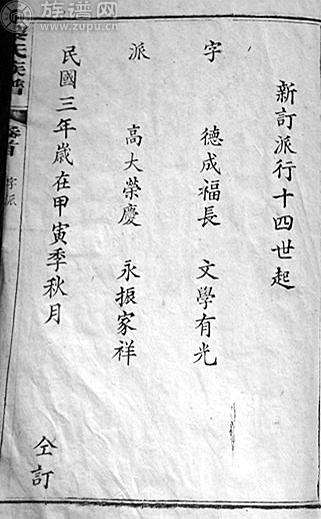 新訂派行十四世起
字 德成福長 文學有光
派 高大榮慶 永振家祥
民國三年歲在甲寅季秋月
仝訂
氏族譜
卷首
字派
族谱网
www.zupu.cn